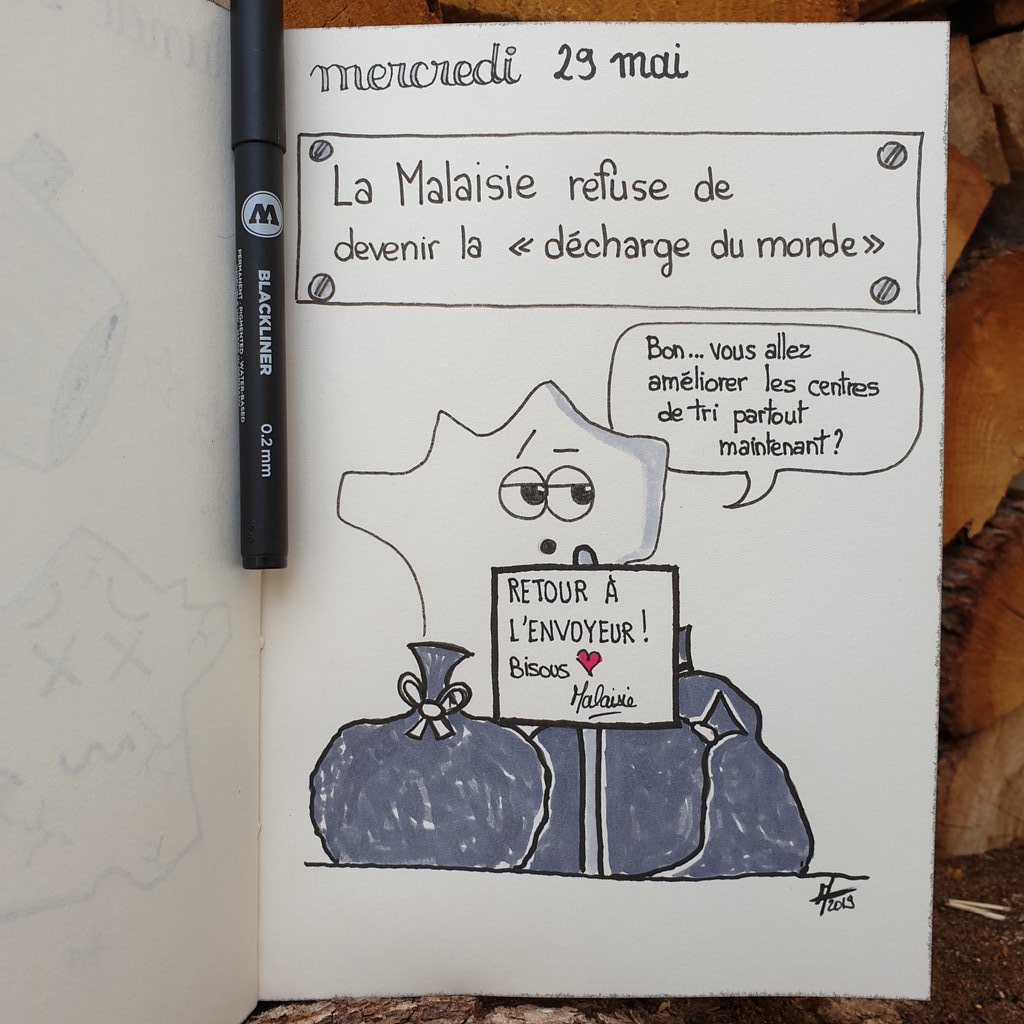 mercredi 29 mai
La Malaisie refuse de
devenir la « décharge du monde »
Bon... vous allez
améliorer les centres
de tri partout
maintenant ?
RETOUR À
L'ENVOYEUR !
Bisous
Malaisie
2019
M
BLACKLINER
PERMANENT · PIGMENTED · WATER-BASED
0.2 mm